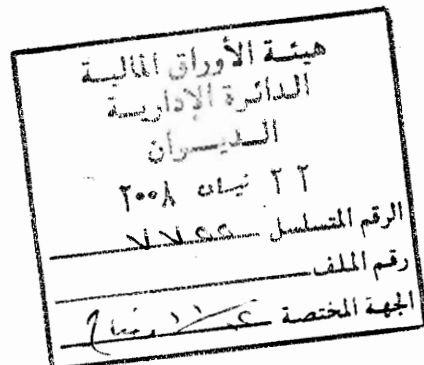 هيئة الأوراق المالية
الدائرة الإدارية
الديوان
٢٢ نيسان ٢٠٠٨
الرقم المتسلسل
رقم الملف
الجهة المختصة